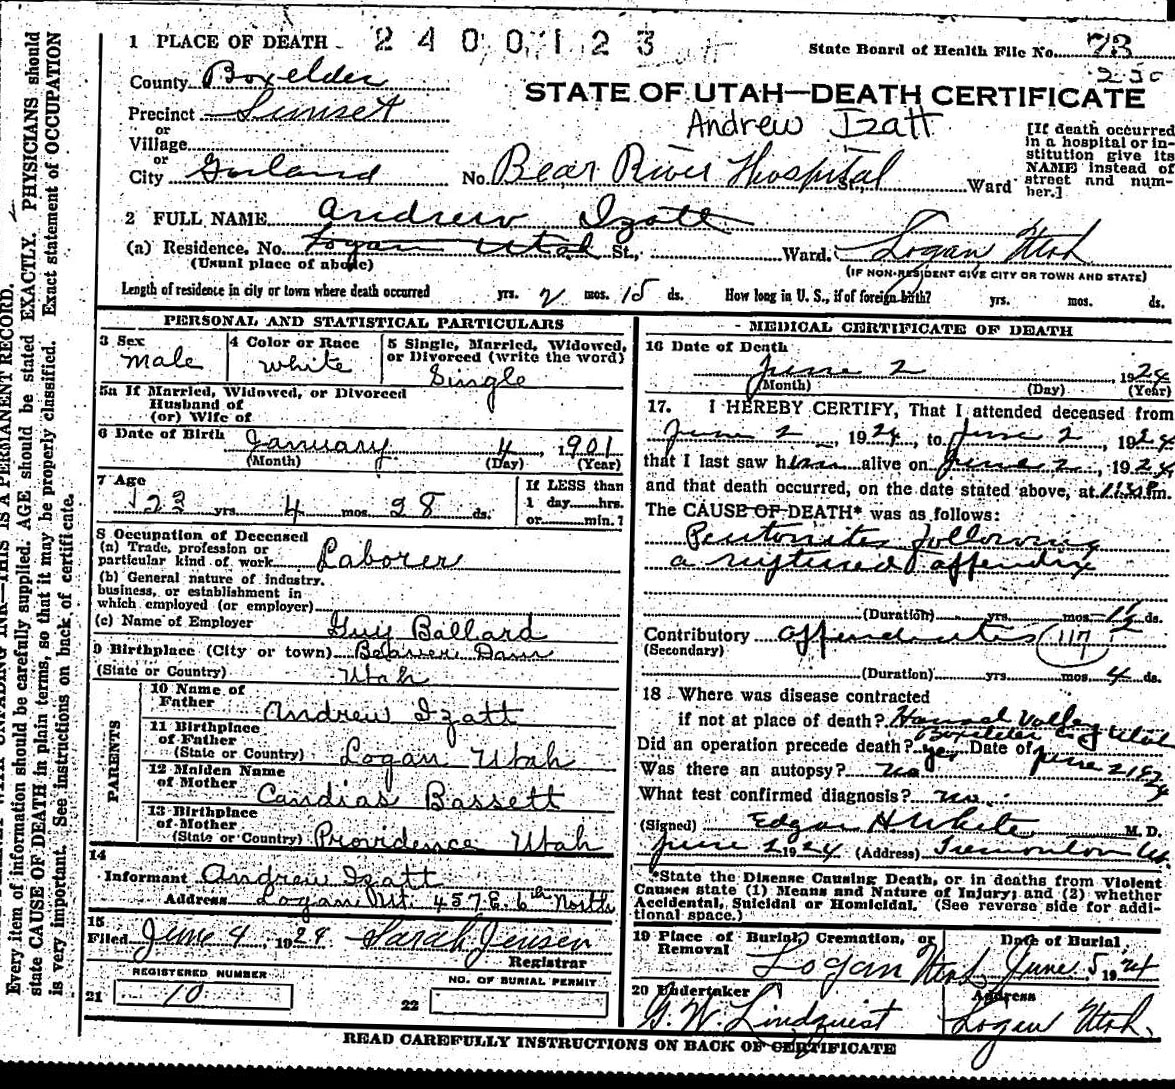 1 PLACE OF DEATH
2400123
State Board of Health File No. 73
230
County Boxelder
STATE OF UTAH—DEATH CERTIFICATE
Precinct Sunset
Andrew Izatt
or
Village
or
City Garland
No. Bear River Hospital St., Ward
[If death occurred
in a hospital or in-
stitution give its
NAME instead of
street and num-
ber.]
2 FULL NAME Andrew Izatt
(a) Residence. No. Logan Utah St., Ward. Logan Utah
(Usual place of abode)
(IF NON-RESIDENT GIVE CITY OR TOWN AND STATE)
Length of residence in city or town where death occurred yrs. 2 mos. 15 ds. How long in U. S., if of foreign birth? yrs. mos. ds.
PERSONAL AND STATISTICAL PARTICULARS
3 Sex
Male
4 Color or Race
White
5 Single, Married, Widowed,
or Divorced (write the word)
Single
5a If Married, Widowed, or Divorced
Husband of
(or) Wife of
6 Date of Birth January 4, 1901
(Month) (Day) (Year)
7 Age
23 yrs. 4 mos. 28 ds.
If LESS than
1 day......hrs.
or......min. ?
8 Occupation of Deceased
(a) Trade, profession or
particular kind of work Laborer
(b) General nature of industry.
business, or establishment in
which employed (or employer)
(c) Name of Employer Guy Ballard
9 Birthplace (City or town) Beaver Dam
(State or Country) Utah
PARENTS
10 Name of
Father Andrew Izatt
11 Birthplace
of Father
(State or Country) Logan Utah
12 Maiden Name
of Mother Candias Bassett
13 Birthplace
of Mother
(State or Country) Providence Utah
14
Informant Andrew Izatt
Address Logan Ut. 457 E. 6th North
15
Filed June 4, 1924 Sarah Jensen
Registrar
REGISTERED NUMBER
21 10
NO. OF BURIAL PERMIT
22
MEDICAL CERTIFICATE OF DEATH
16 Date of Death
June 2, 1924
(Month) (Day) (Year)
17. I HEREBY CERTIFY, That I attended deceased from
June 2, 1924, to June 2, 1924
that I last saw him alive on June 2, 1924
and that death occurred, on the date stated above, at m.
The CAUSE OF DEATH* was as follows:
Peritonites following
a ruptured appendix
(Duration) yrs. mos. 1½ ds.
Contributory appendicitis 117
(Secondary)
(Duration) yrs. mos. 4 ds.
18 Where was disease contracted
if not at place of death? Hansel Valley
Boxelder Co Utah
Did an operation precede death? yes Date of June 2 1924
Was there an autopsy? no
What test confirmed diagnosis? no
(Signed) Edgar H White M. D.
June 2 1924 (Address) Tremonton Ut.
*State the Disease Causing Death, or in deaths from Violent
Causes state (1) Means and Nature of Injury; and (2) whether
Accidental, Suicidal or Homicidal. (See reverse side for addi-
tional space.)
19 Place of Burial, Cremation, or
Removal
Logan Utah
Date of Burial
June 5 1924
20 Undertaker
G. W. Lindquist
Address
Logan Utah
READ CAREFULLY INSTRUCTIONS ON BACK OF CERTIFICATE
UNFADING INK—THIS IS A PERMANENT RECORD.
Every item of information should be carefully supplied. AGE should be stated EXACTLY. PHYSICIANS should
state CAUSE OF DEATH in plain terms, so that it may be properly classified. Exact statement of OCCUPATION
is very important. See instructions on back of certificate.